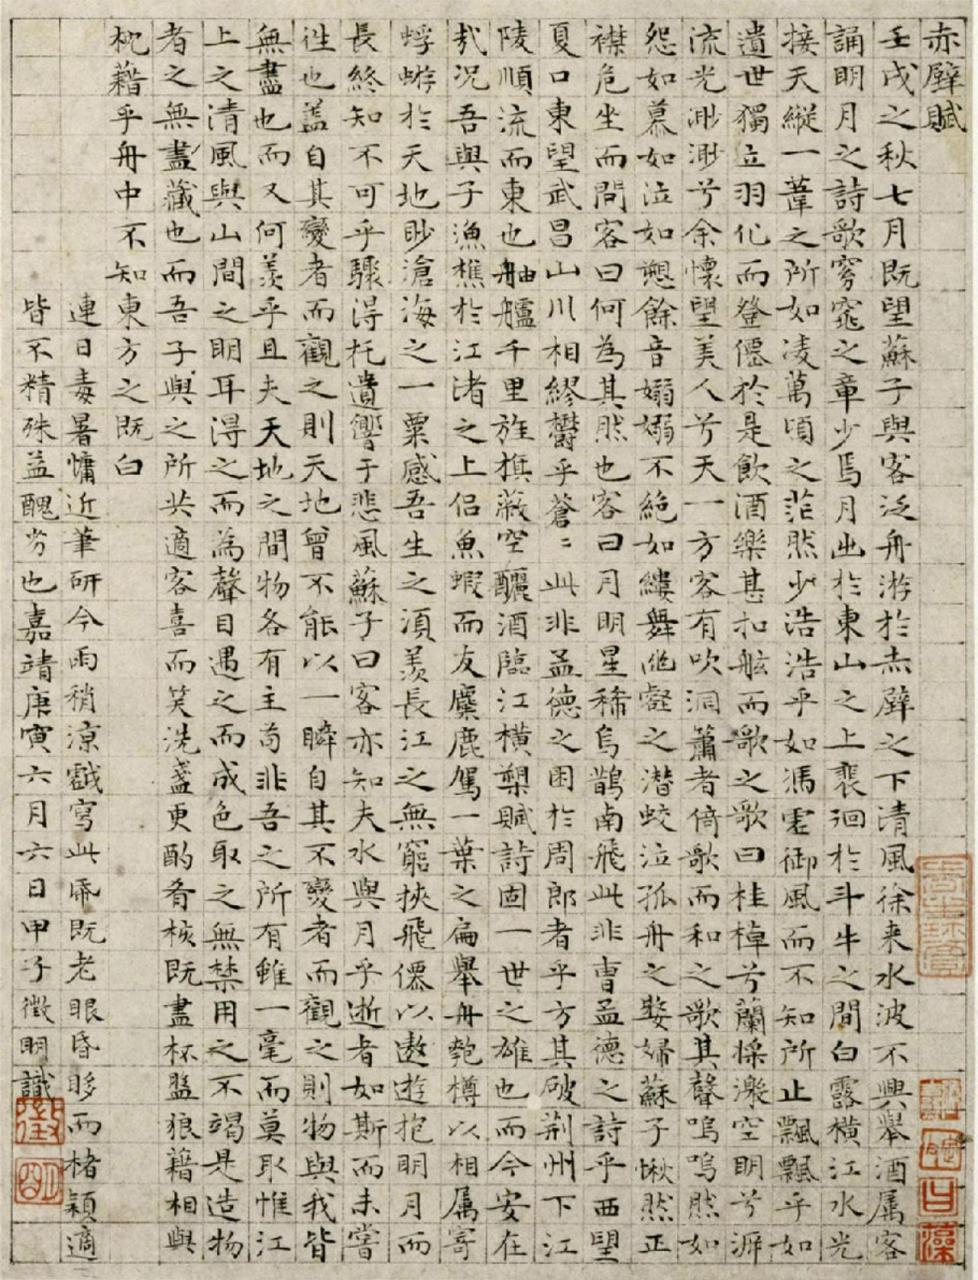 赤壁賦
壬戌之秋七月既望蘇子與客泛舟游於赤壁之下清風徐来水波不興舉酒属客
誦明月之詩歌窈窕之章少焉月出於東山之上裴徊於斗牛之間白露橫江水光
接天縱一葦之所如凌萬頃之茫然少浩浩乎如馮虛御風而不知所止飄飄乎如
遺世獨立羽化而登僊於是飲酒樂甚扣舷而歌之歌曰桂棹兮蘭槳激空明兮泝
流光渺渺兮余懷望美人兮天一方客有吹洞蕭者倚歌而和之歌其聲嗚嗚然如
怨如慕如泣如愬餘音嫋嫋不絕如縷舞幽壑之潛蛟泣孤舟之嫠婦蘇子愀然正
襟危坐而問客曰何為其然也客曰月明星稀烏鵲南飛此非曹孟德之詩乎西望
夏口東望武昌山川相繆欝乎蒼〻此非孟德之困於周郎者乎方其破荊州下江
陵順流而東也舳艫千里旌旗蔽空釃酒臨江橫槊賦詩固一世之雄也而今安在
㢤況吾與子漁樵於江渚之上侣魚蝦而友麋鹿駕一葉之扁舉舟匏樽以相属寄
蜉蝣於天地眇滄海之一粟感吾生之湏羨長江之無窮挾飛僊以遨遊抱明月而
長終知不可乎驟得托遺響于悲風蘇子曰客亦知夫水與月乎逝者如斯而未嘗
徃也盖自其變者而觀之則天地曾不能以一瞬自其不變者而觀之則物與我皆
無盡也而又何羨乎且夫天地之間物各有主苟非吾之所有雖一毫而莫取惟江
上之清風與山間之明耳得之而為聲目遇之而成色取之無禁用之不竭是造物
者之無盡藏也而吾子與之所共適客喜而笑洗盞更酌肴核既盡杯盤狼籍相與
枕藉乎舟中不知東方之既白
連日毒暑慵近筆研今雨稍涼戲寫此帋既老眼昏眵而楮穎適
皆不精殊益醜劣也嘉靖庚寅六月六日甲子徵明識
徵
明